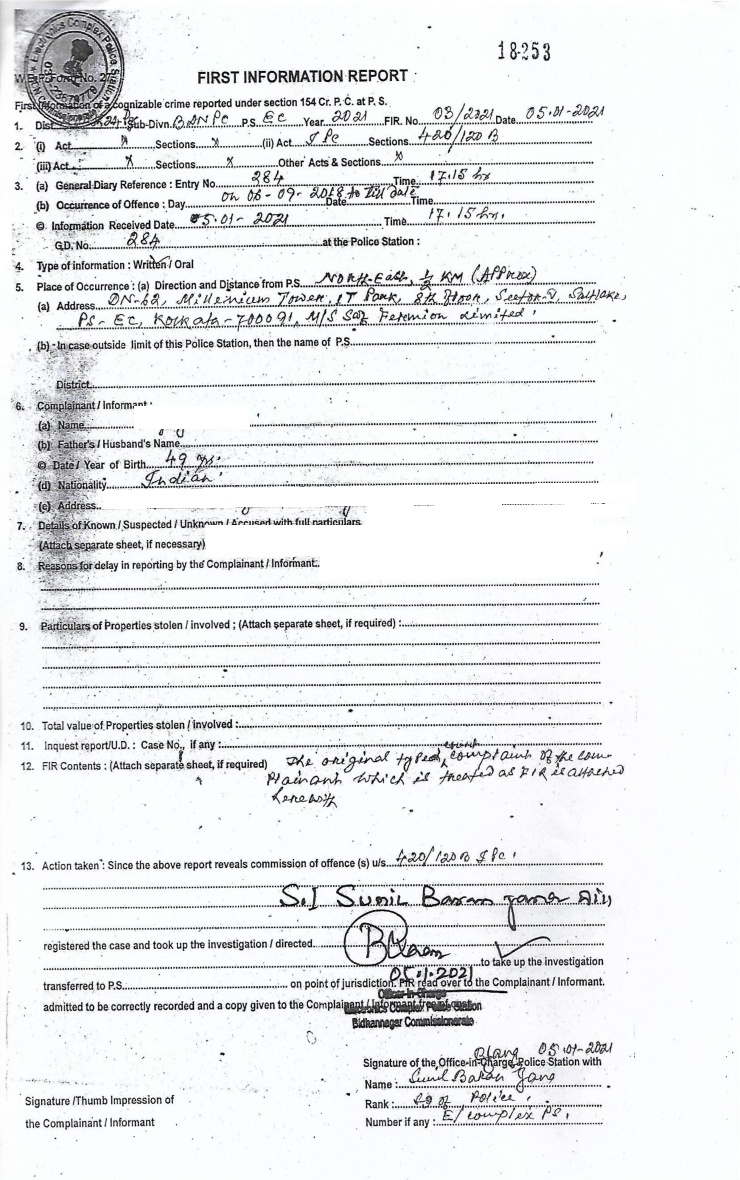 18253
Electronics Complex Police Station
W.B.P. Form No. 27
FIRST INFORMATION REPORT
First Information of a cognizable crime reported under section 154 Cr. P. C. at P. S.
1. Dist Sub-Divn. BDNPC P.S. EC Year 2021 FIR. No 03/2021 Date 05-01-2021
2. (i) Act x Sections x (ii) Act IPC Sections 420/120B
(iii) Act x Sections x Other Acts & Sections x
3. (a) General Diary Reference : Entry No 284 Time 17.15 hrs
(b) Occurrence of Offence : Day on 06-09-2018 to till date Date Time
© Information Received Date 05.01-2021 Time 17.15 hrs.
G.D. No. 284 at the Police Station :
4. Type of information : Written / Oral
5. Place of Occurrence : (a) Direction and Distance from P.S. North-East, ½ KM (Approx)
(a) Address DN-62, Millenium Tower, IT Park, 8th Floor, Sector-V, Saltlake,
PS- EC, Kolkata-700091, M/S Fermion Limited
(b) In case outside limit of this Police Station, then the name of P.S.
District
6. Complainant / Informant
(a) Name
(b) Father's / Husband's Name
© Date / Year of Birth 49 yrs.
(d) Nationality Indian
(e) Address
7. Details of Known / Suspected / Unknown / Accused with full particulars
(Attach separate sheet, if necessary)
8. Reasons for delay in reporting by the Complainant / Informant.
9. Particulars of Properties stolen / involved ; (Attach separate sheet, if required) :
10. Total value of Properties stolen / involved :
11. Inquest report/U.D. : Case No., if any :
12. FIR Contents : (Attach separate sheet, if required) The original typed complaint of the com-
plainant which is treated as FIR is attached
herewith
13. Action taken : Since the above report reveals commission of offence (s) u/s 420/120B IPC
S.I Sunil Baran Jana
registered the case and took up the investigation / directed to take up the investigation
05.1.2021
transferred to P.S. on point of jurisdiction. FIR read over to the Complainant / Informant.
Officer-in-Charge
admitted to be correctly recorded and a copy given to the Complainant / Informant free of cost
Electronics Complex Police Station
Bidhannagar Commissionerate
05-01-2021
Signature of the Office-in-Charge, Police Station with
Name : Sunil Baran Jana
Rank : SI of Police
Number if any : E/complex PS.
Signature /Thumb Impression of
the Complainant / Informant